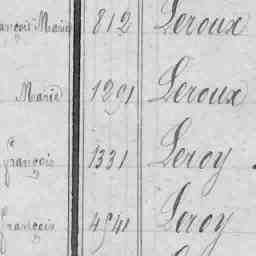 François Marie 812 Leroux
Marie 1291 Leroux
François 1331 Leroy
François 4541 Leroy